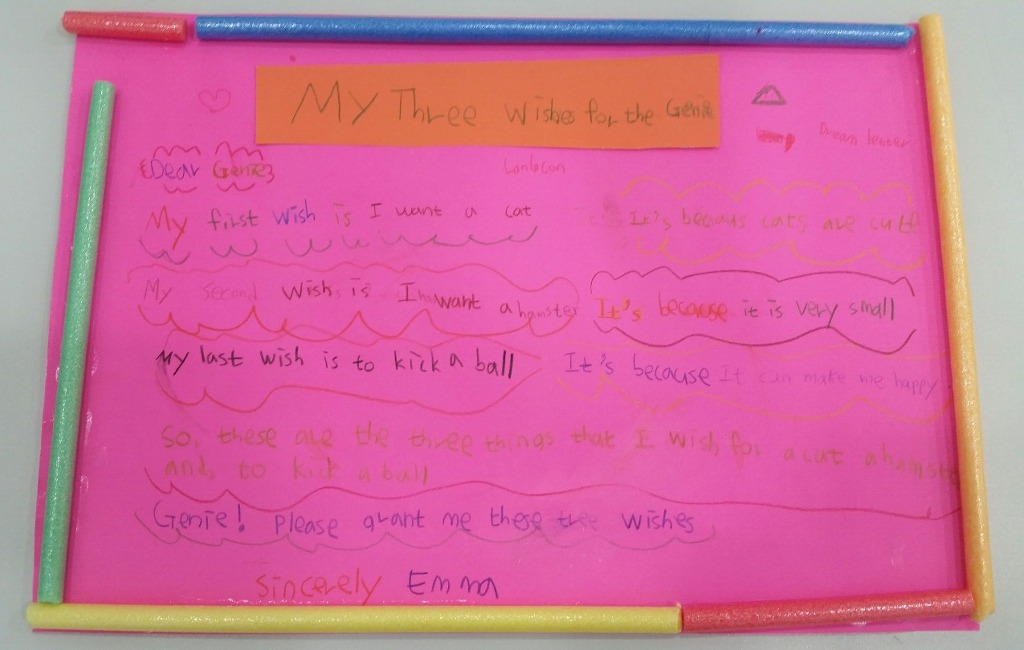 My Three Wishes for the Genie
Dream letter
Dear Genie
My first wish is I want a cat It's becaus cats are cute
My second wish is I want a hamster It's because it is very small
My last wish is to kick a ball It's because It can make me happy
So, these are the three things that I wish for a cat a hamster
and, to kick a ball
Genie! please grant me these tree wishes
Sincerely Emma